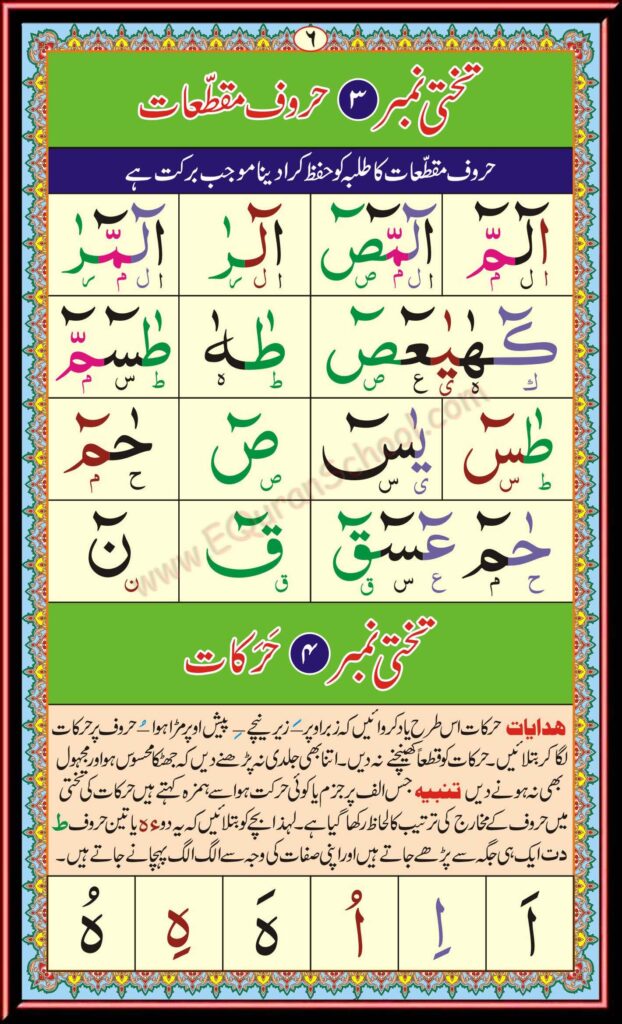 ٦
تختی نمبر ٣ حروف مقطّعات
حروف مقطّعات کا طلبہ کو حفظ کرا دینا موجب برکت ہے
الٓمّٓ الٓمّٓصٓ الٓرٰ الٓمّٓرٰ
ا ل م ا ل م ص ا ل ر ا ل م ر
كٓهٰيٰعٓصٓ طٰهٰ طٰسٓمّٓ
ك ه ي ع ص ط ه ط س م
طٰسٓ يٰسٓ صٓ حٰمٓ
ط س ي س ص ح م
حٰمٓ عٓسٓقٓ قٓ نٓ
ح م ع س ق ق ن
تختی نمبر ۴ حَرَکات
هدایات حرکات اس طرح یاد کروائیں کہ زبر اوپر َ زیر نیچے ِ پیش اوپر مڑا ہوا ُ حروف پر حرکات
لگا کر بتلائیں۔ حرکات کو قطعاً کھینچنے نہ دیں۔ اتنا بھی جلدی نہ پڑھنے دیں کہ جھٹکا محسوس ہو اور مجہول
بھی نہ ہونے دیں تنبیه جس الف پر جزم یا کوئی حرکت ہو اسے ہمزہ کہتے ہیں حرکات کی تختی
میں حروف کے مخارج کی ترتیب کا لحاظ رکھا گیا ہے۔ لہذا بچے کو بتلائیں کہ یہ دو ء ہ یا تین حروف ط
د ت ایک ہی جگہ سے پڑھے جاتے ہیں اور اپنی صفات کی وجہ سے الگ الگ پہچانے جاتے ہیں۔
اَ اِ اُ هَ هِ هُ
www.EQuranSchool.com